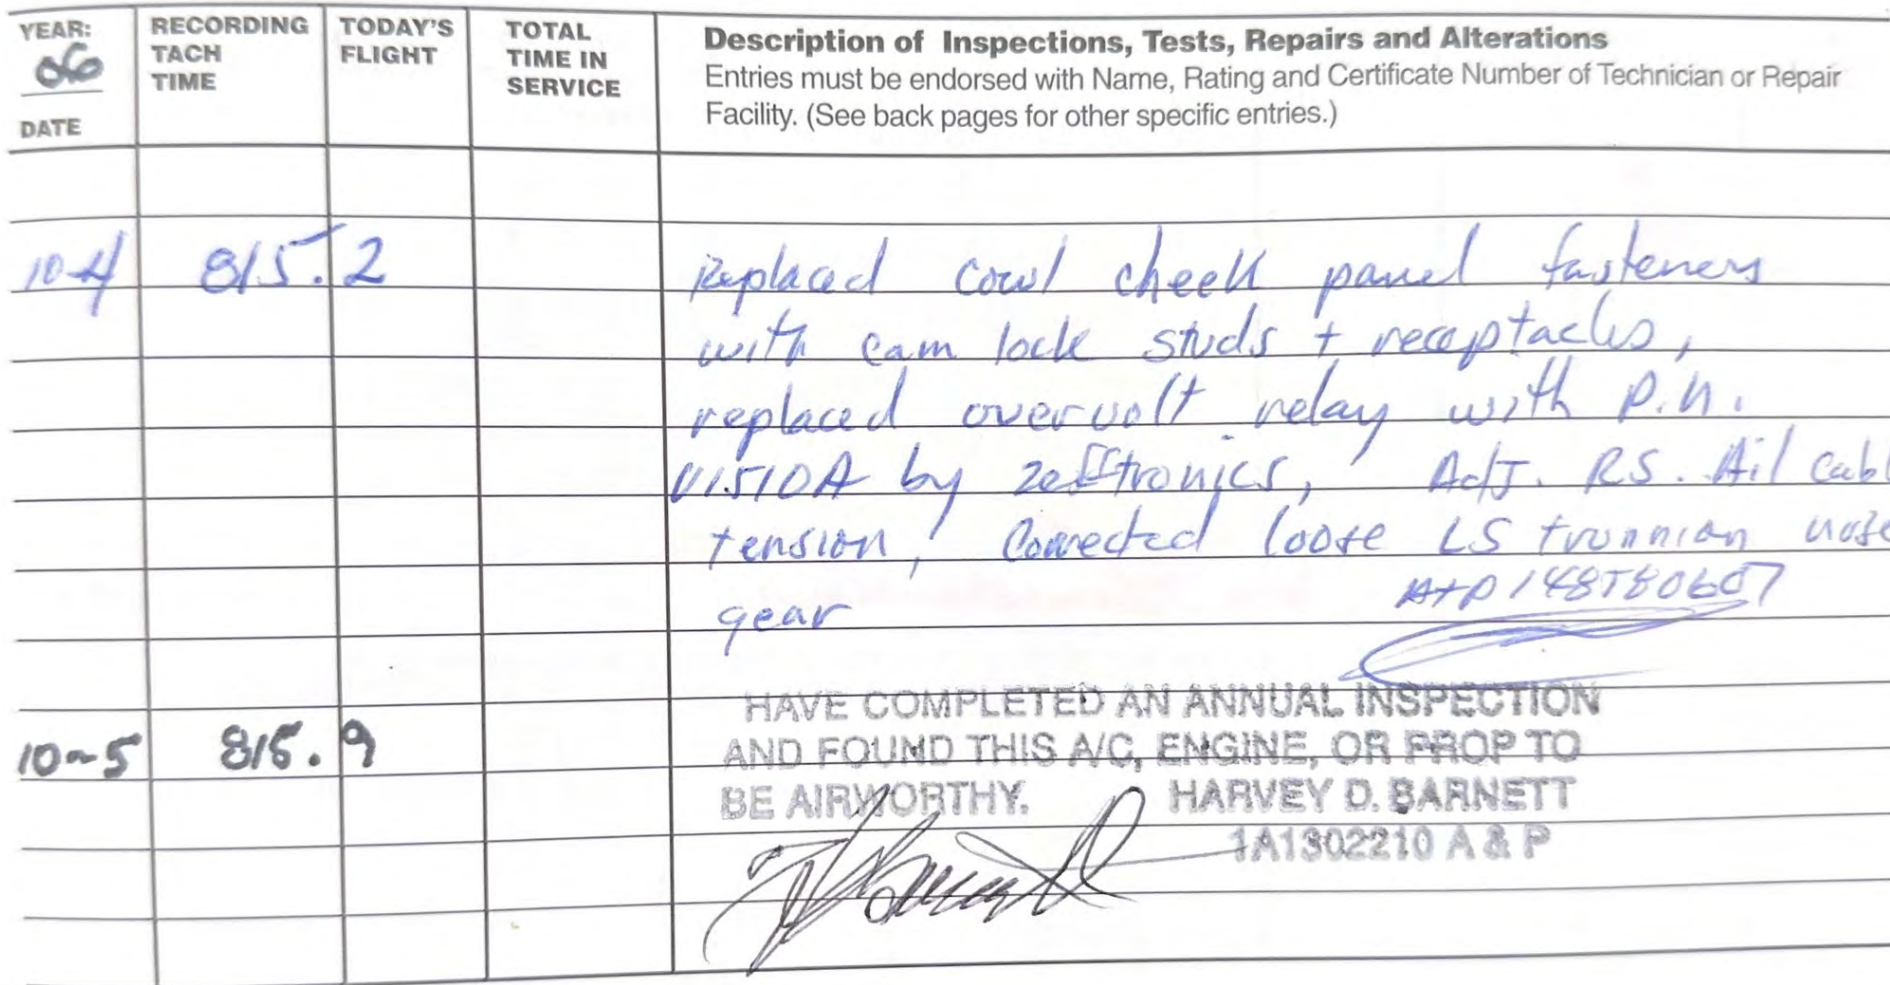 YEAR: 06
DATE
RECORDING TACH TIME
TODAY'S FLIGHT
TOTAL TIME IN SERVICE
Description of Inspections, Tests, Repairs and Alterations
Entries must be endorsed with Name, Rating and Certificate Number of Technician or Repair
Facility. (See back pages for other specific entries.)
10-4 815.2 Replaced cowl cheek panel fasteners
with cam lock studs + receptacles,
replaced overvolt relay with P.N.
V1510A by zeftronics, Adj. RS. Ail Cabl
tension, Corrected loose LS trunnian nose
gear
HAVE COMPLETED AN ANNUAL INSPECTION
10-5 815.9 AND FOUND THIS A/C, ENGINE, OR PROP TO
BE AIRWORTHY. HARVEY D. BARNETT
1A1302210 A & P